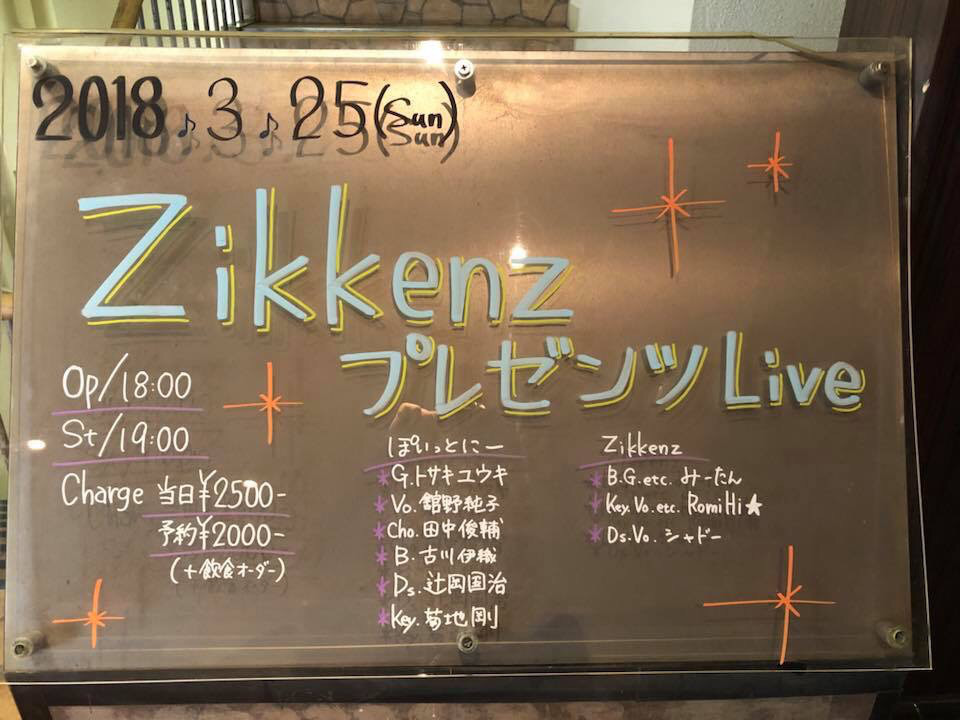 2018♪3♪25(Sun)
Zikkenz
プレゼンツLive
Op/18:00
St/19:00
Charge 当日¥2500-
予約¥2000-
(+飲食オーダー)
ぽいっとにー
*G.トサキユウキ
*Vo.舘野純子
*Cho.田中俊輔
*B.古川伊織
*Ds.辻岡国治
*Key.菊地剛
Zikkenz
*B.G.etc.みーたん
*Key.Vo.etc.RomiHi★
*Ds.Vo.シャドー